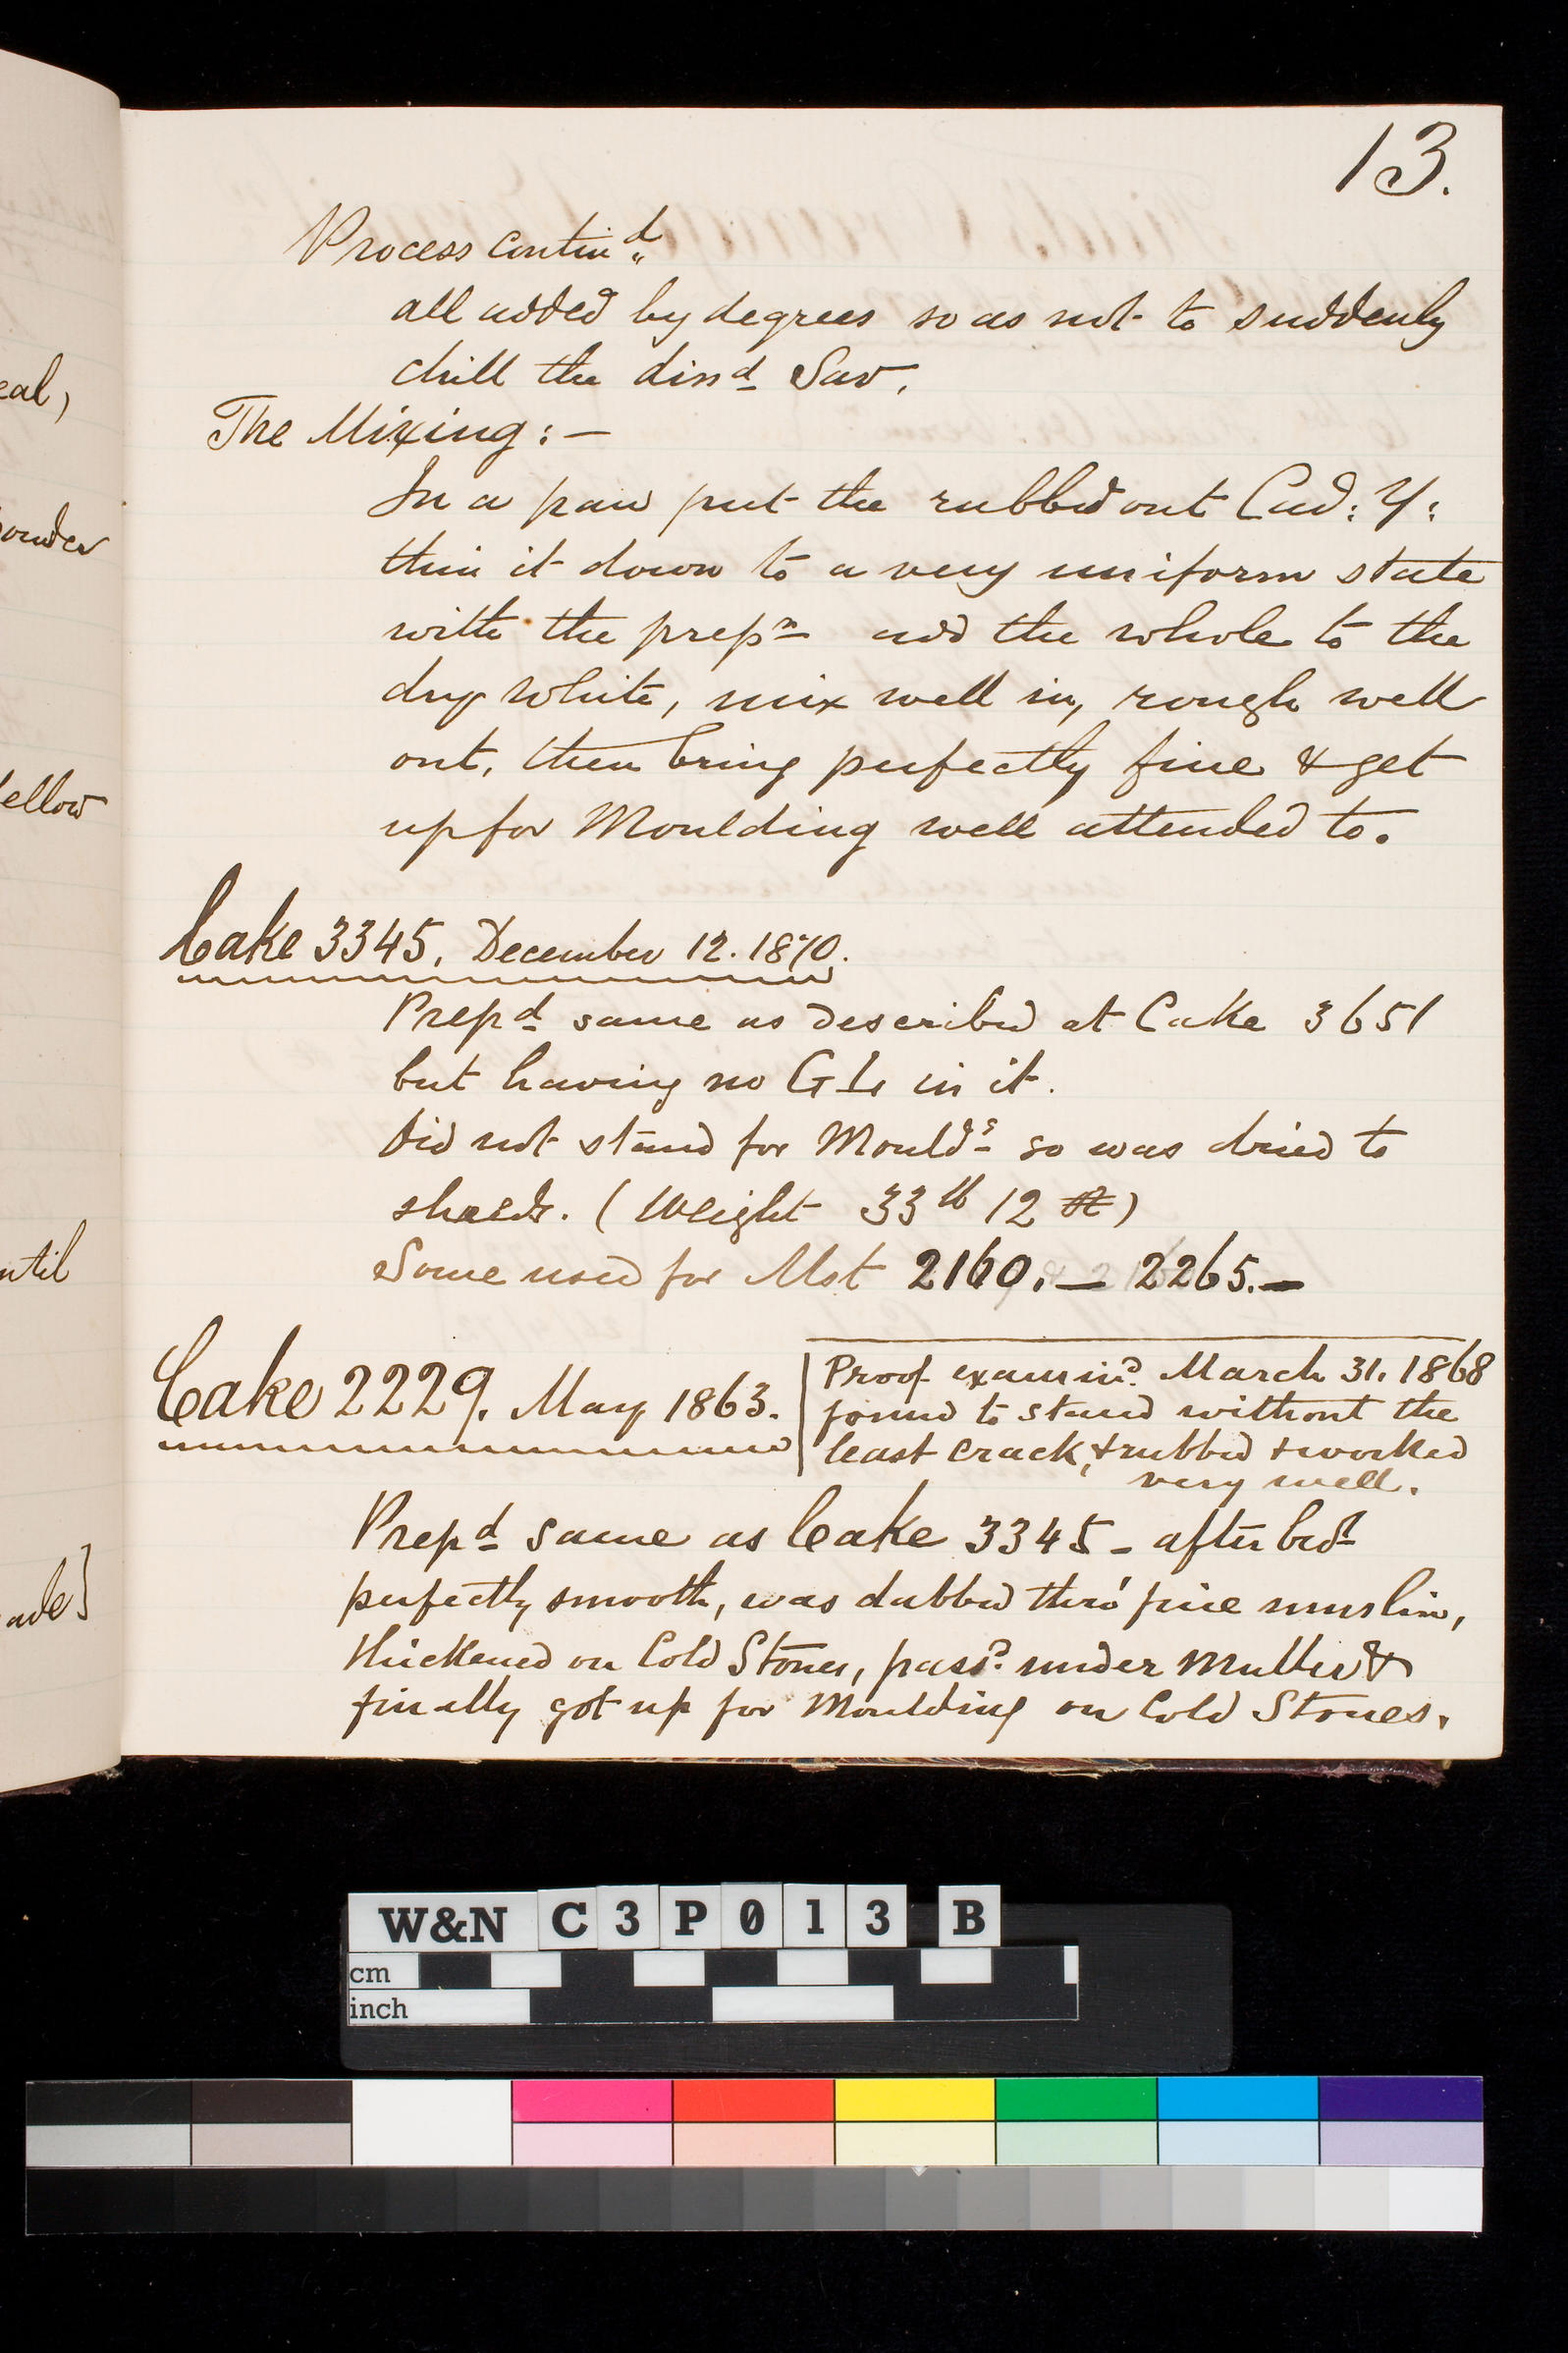 13.
Process contind
all added by degrees so as not to suddenly
chill the dissd Sav.
The Mixing:—
In a pan put the rubbed out Cad: Y:
thin it down to a very uniform state
with the prepn add the whole to the
dry White, mix well in, rough well
out, then bring perfectly fine & get
up for Moulding well attended to.
Cake 3345. December 12. 1870.
Prepd same as described at Cake 3651
but having no GL in it.
Did not stand for Mouldg so was dried to
sheds. (Weight 33 lb 12
Some used for Mst 2160. — 2265. —
Cake 2229. May 1863.
Proof examind. March 31. 1868
found to stand without the
least crack, & rubbed & worked
very well.
Prepd same as Cake 3345 - after
perfectly smooth, was dabbed thro' fine muslin,
thickened on Cold Stones, passd. under Muller &
finally got up for Moulding on Cold Stones.
eal,
powder
Yellow
until
ade]
W&N C3P013 B
cm
inch